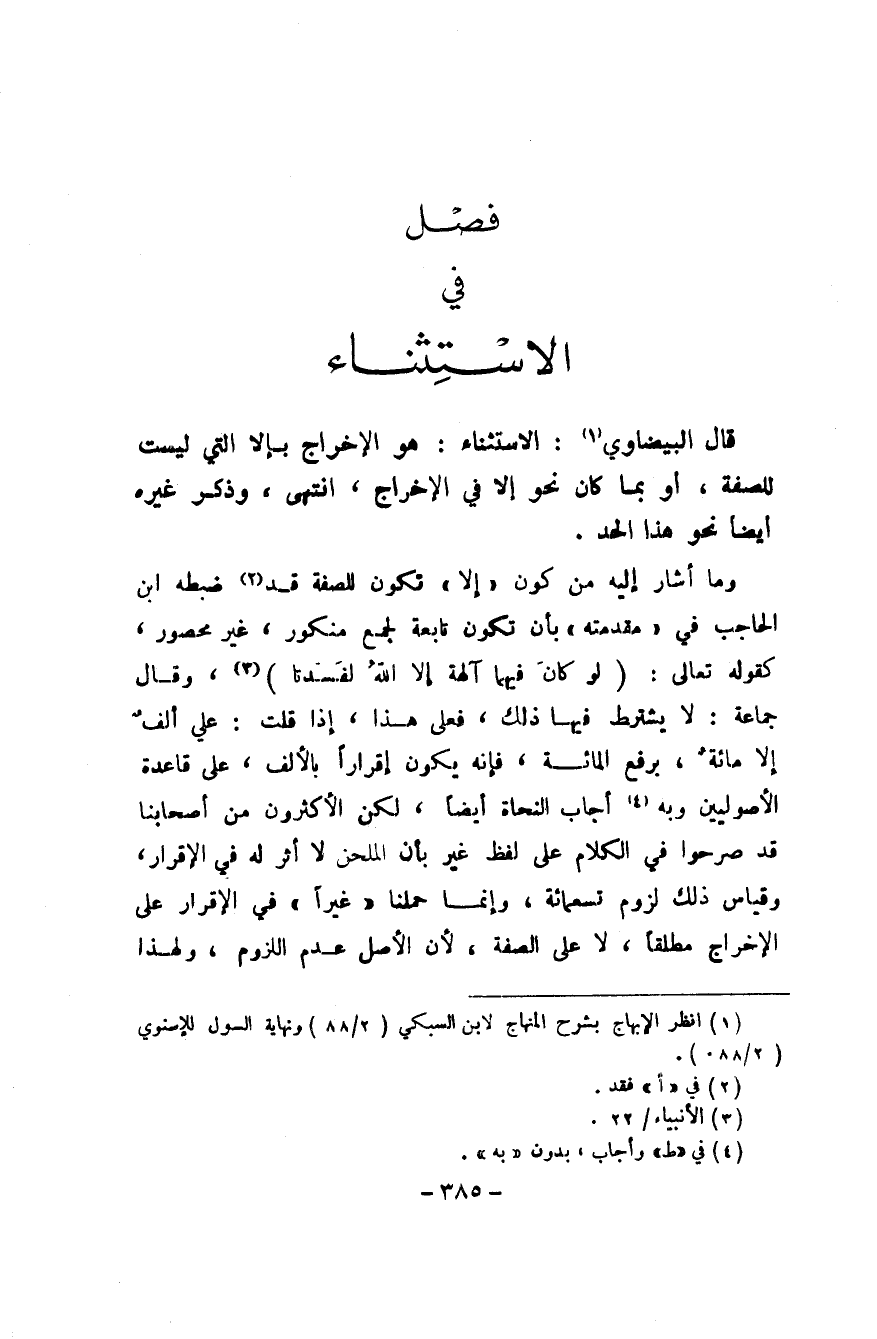 فصْل
في
الاسْتِثناء
قال البيضاوي(١) : الاستثناء : هو الإخراج بإلا التي ليست
للصفة ، أو بما كان نحو إلا في الإخراج ، انتهى ، وذكر غيره
أيضاً نحو هذا الحد .
وما أشار إليه من كون « إلا » تكون للصفة قد(٢) ضبطه ابن
الحاجب في « مقدمته » بأن تكون تابعة لجمع منكور ، غير محصور ،
كقوله تعالى : ( لو كانَ فيهما آلهة إلا اللهُ لفَسَدتا )(٣) ، وقال
جماعة : لا يشترط فيها ذلك ، فعلى هذا ، إذا قلت : علي ألفٌ
إلا مائةٌ ، برفع المائة ، فإنه يكون إقراراً بالألف ، على قاعدة
الأصوليين وبه (٤) أجاب النحاة أيضاً ، لكن الأكثرون من أصحابنا
قد صرحوا في الكلام على لفظ غير بأن الملحن لا أثر له في الإقرار،
وقياس ذلك لزوم تسعمائة ، وإنما حملنا « غيراً » في الإقرار على
الإخراج مطلقاً ، لا على الصفة ، لأن الأصل عدم اللزوم ، ولهذا
(١) انظر الإبهاج بشرح المنهاج لابن السبكي ( ٨٨/٢ ) ونهاية السول للإسنوي
( ٠٨٨/٢ ) .
(٢) في « أ » فقد .
(٣) الأنبياء/ ٢٢ .
(٤) في «ط» وأجاب ، بدون « به » .
- ٣٨٥ -